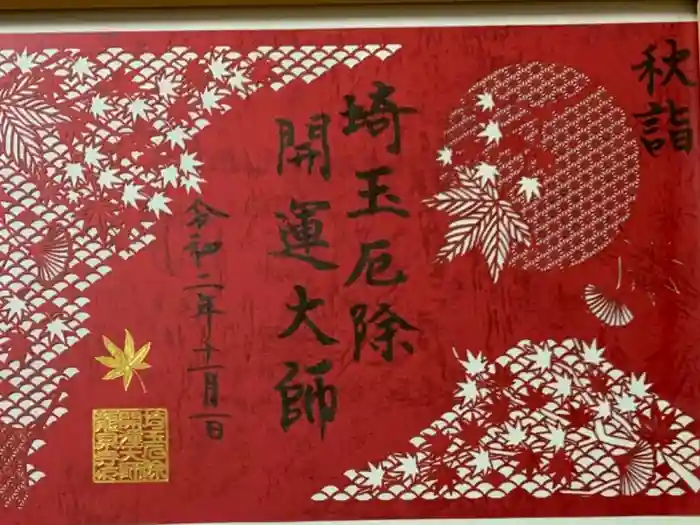 秋詣
埼玉厄除
開運大師
令和二年十一月一日